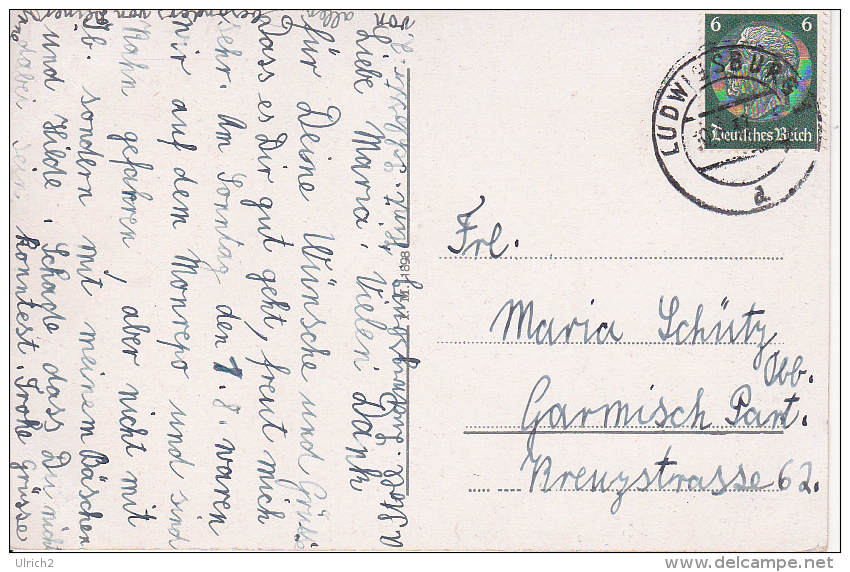 Liebe Maria! Vielen Dank
für Deine Wünsche und Grüsse
Dass es Dir gut geht, freut mich
sehr. Am Sonntag den 7.8. waren
wir auf dem Monrepo und sind
Kahn gefahren, aber nicht mit
Ob. sondern mit meinem Bäschen
und Hilde. Schade dass Du nicht
dabei sein konntest. Frohe Grüsse
allen
von
besonders
von
M 1898
6 6
Deutsches Reich
LUDWIGSBURG
d
Frl.
Maria Schütz
Obb.
Garmisch Part.
Kreuzstrasse 62.
Ulrich2
www.delcampe.net